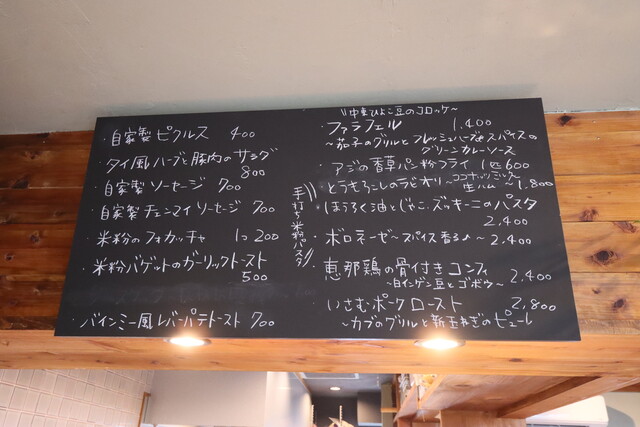 ・自家製ピクルス 400
・タイ風ハーブと豚肉のサラダ
800
・自家製ソーセージ 700
・自家製チェンマイソーセージ 700
・米粉のフォカッチャ 1コ200
・米粉バゲットのガーリックトースト
500
・バインミー風レバーパテトースト 700
手打ち米粉パスタ
中東ひよこ豆のコロッケ~
・ファラフェル 1,400
~茄子のグリルとフレッシュハーブとスパイスの
グリーンカレーソース
・アジの香草パン粉フライ 1匹600
・とうもろこしのラビオリ~ココナッツミルク
生ハム~1,800
・ほうろく油とじゃこ、ズッキーニのパスタ
2,400
・ボロネーゼ~スパイス香る♪~2,400
・恵那鶏の骨付きコンフィ
~白インゲン豆とゴボウ~ 2,400
・いさむポークロースト 2,800
~カブのグリルと新玉ねぎのピューレ